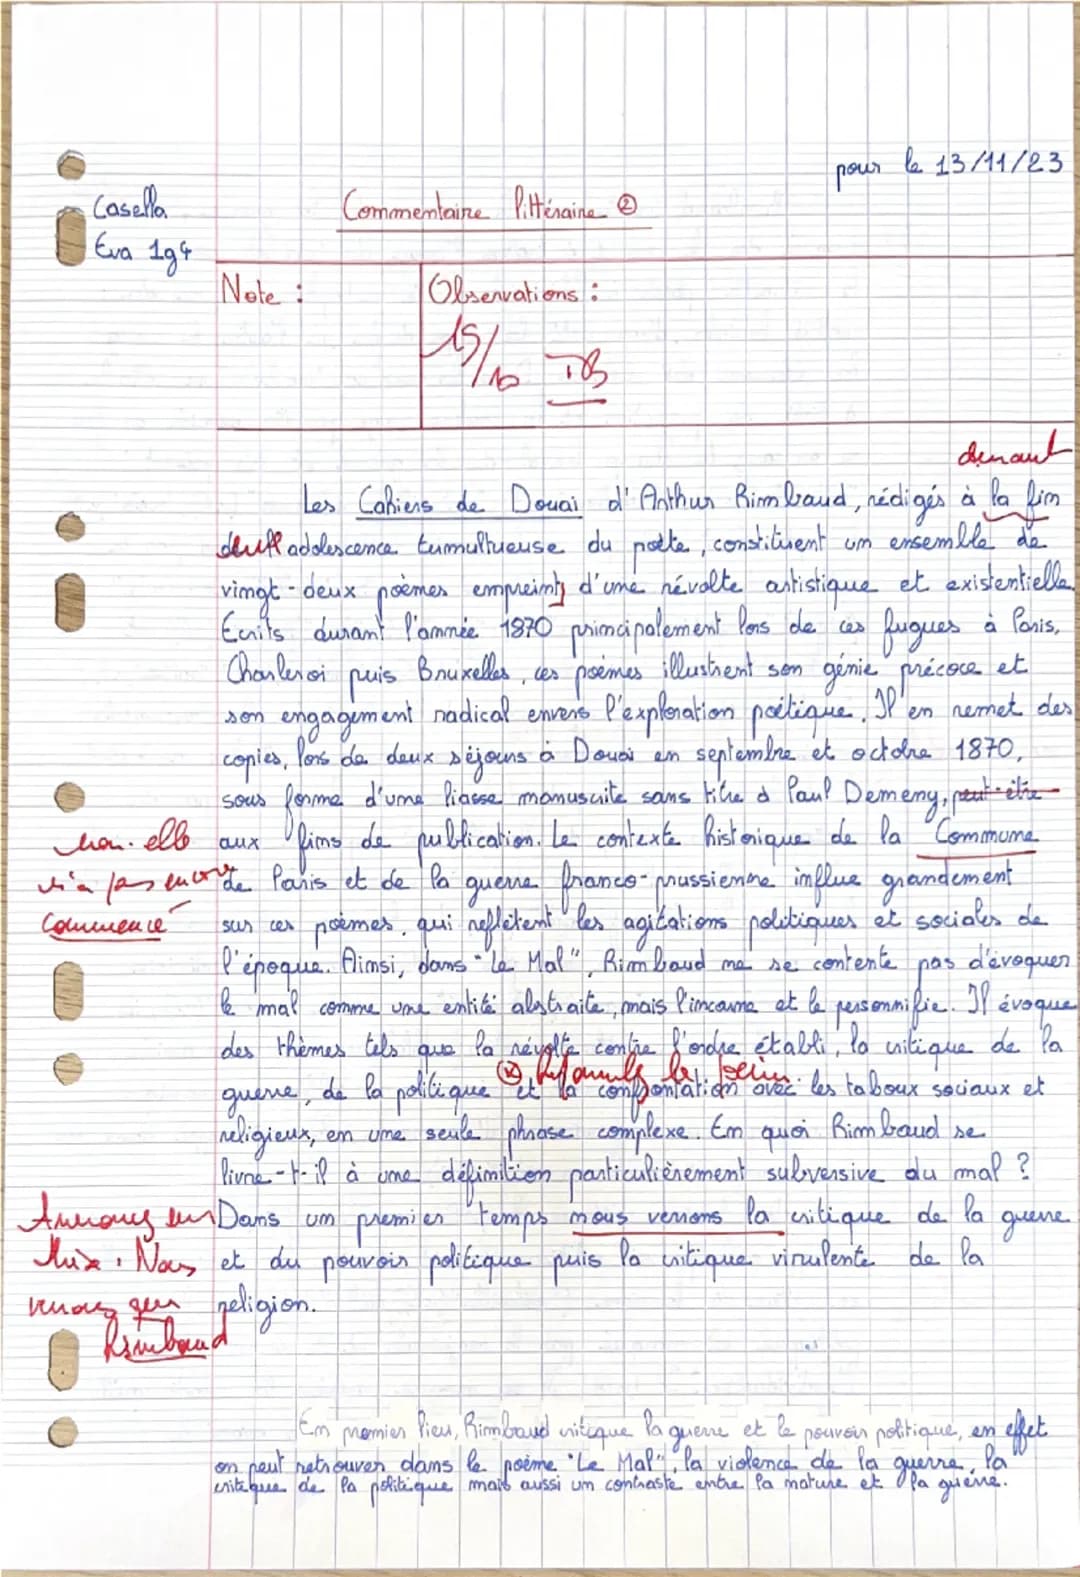 pour le 13/11/23
Casella
Eva 1g4
Commentaire littéraire ②
Note :
Observations :
15/10 TB
durant
Les Cahiers de Douai d'Arthur Rimbaud, rédigés à la fin
de l'adolescence tumultueuse du poète, constituent un ensemble de
vingt-deux poèmes empreints d'une révolte artistique et existentielle.
Ecrits durant l'année 1870 principalement lors de ces fugues à Paris,
Charleroi puis Bruxelles, ces poèmes illustrent son génie précoce et
son engagement radical envers l'exploration poétique. Il en remet des
copies, lors de deux séjours à Douai en septembre et octobre 1870,
sous forme d'une liasse manuscrite sans titre à Paul Demeny, peut-être
aux fins de publication. Le contexte historique de la Commune
non. elle
n'a pas encore
commencé
de Paris et de la guerre franco-prussienne influe grandement
sur ces poèmes, qui reflètent les agitations politiques et sociales de
l'époque. Ainsi, dans "Le Mal", Rimbaud ne se contente pas d'évoquer
le mal comme une entité abstraite, mais l'incarne et le personnifie. Il évoque
des thèmes tels que la révolte contre l'ordre établi, la critique de la
guerre, de la politique et la confrontation avec les tabous sociaux et
religieux, en une seule phrase complexe. En quoi Rimbaud se
livre-t-il à une définition particulièrement subversive du mal ?
Dans un premier temps nous verrons la critique de la guerre
et du pouvoir politique puis la critique virulente de la
religion.
Nous
verrons que
Rimbaud
En premier lieu, Rimbaud critique la guerre et le pouvoir politique, en effet
on peut retrouver dans le poème "Le Mal", la violence de la guerre, la
critique de la politique mais aussi un contraste entre la nature et la guerre.